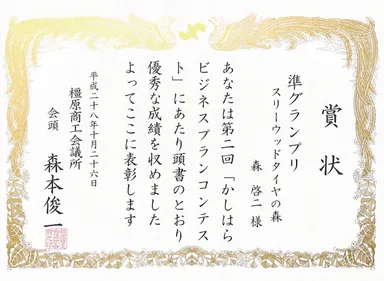 賞状
準グランプリ
スリーウッドタイヤの森
森 啓二 様
あなたは第二回「かしはら
ビジネスプランコンテス
ト」にあたり頭書のとおり
優秀な成績を収めました
よってここに表彰します
平成二十八年十月二十六日
橿原商工会議所
会頭 森本俊一